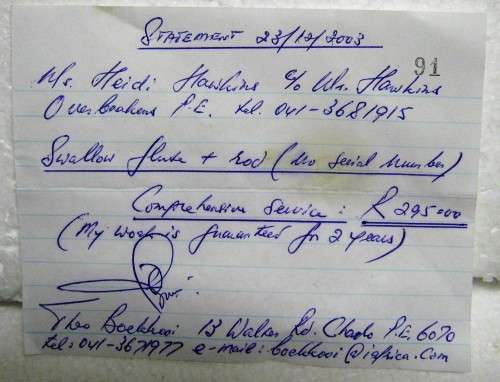 STATEMENT 23/12/2003
91
Ms. Heidi Hawkins c/o Mr. Hawkins
Overbaakens P.E. tel. 041-3681915
Swallow flute + rod (no serial number)
Comprehensive Service: R 295=00
(My work is guaranteed for 2 years)
Theo Boekkooi 13 Walker Rd. Charlo P.E. 6070
tel: 041-3671977 e-mail: boekkooi@iafrica.com